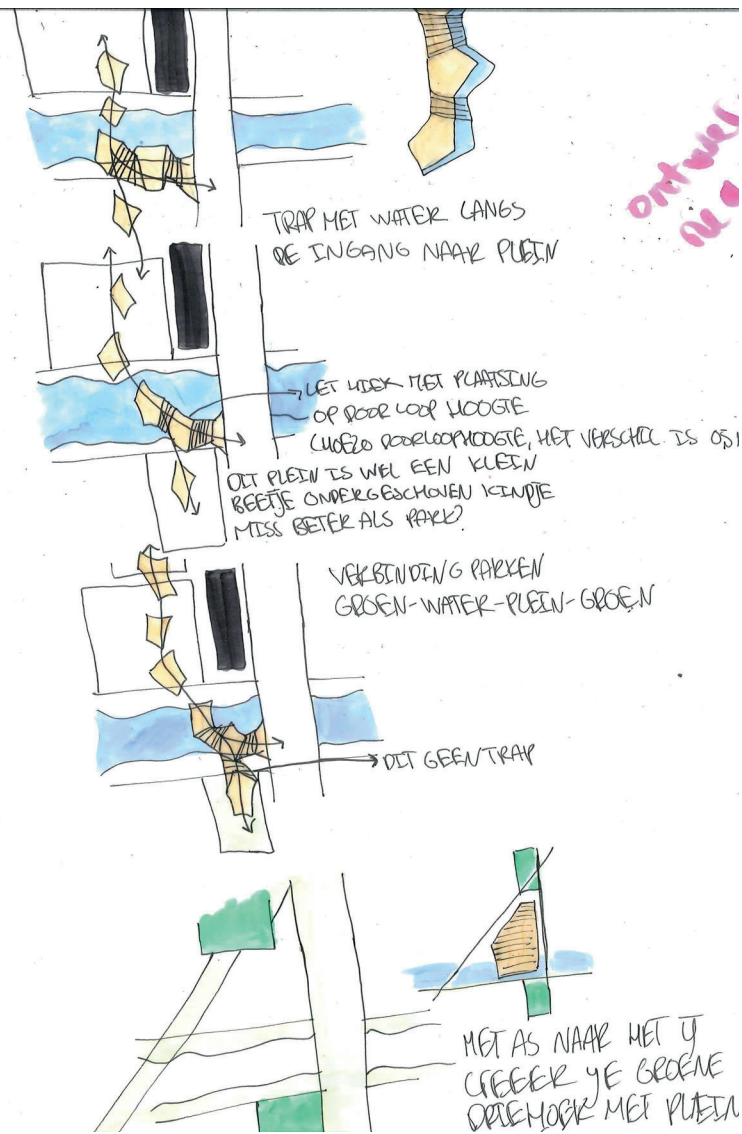 ontwer
TRAP MET WATER LANGS
DE INGANG NAAR PLEIN
LET HIER MET PLAATSING
OP DOORLOOP HOOGTE
(HOEZO DOORLOOPHOOGTE, HET VERSCHIL IS 0,5
DIT PLEIN IS WEL EEN KLEIN
BEETJE ONDERGESCHOVEN KINDJE
MISS BETER ALS PARK?
VERBINDING PARKEN
GROEN-WATER-PLEIN-GROEN
DIT GEEN TRAP
MET AS NAAR HET IJ
CREEER JE GROENE
DRIEHOEK MET PLEIN